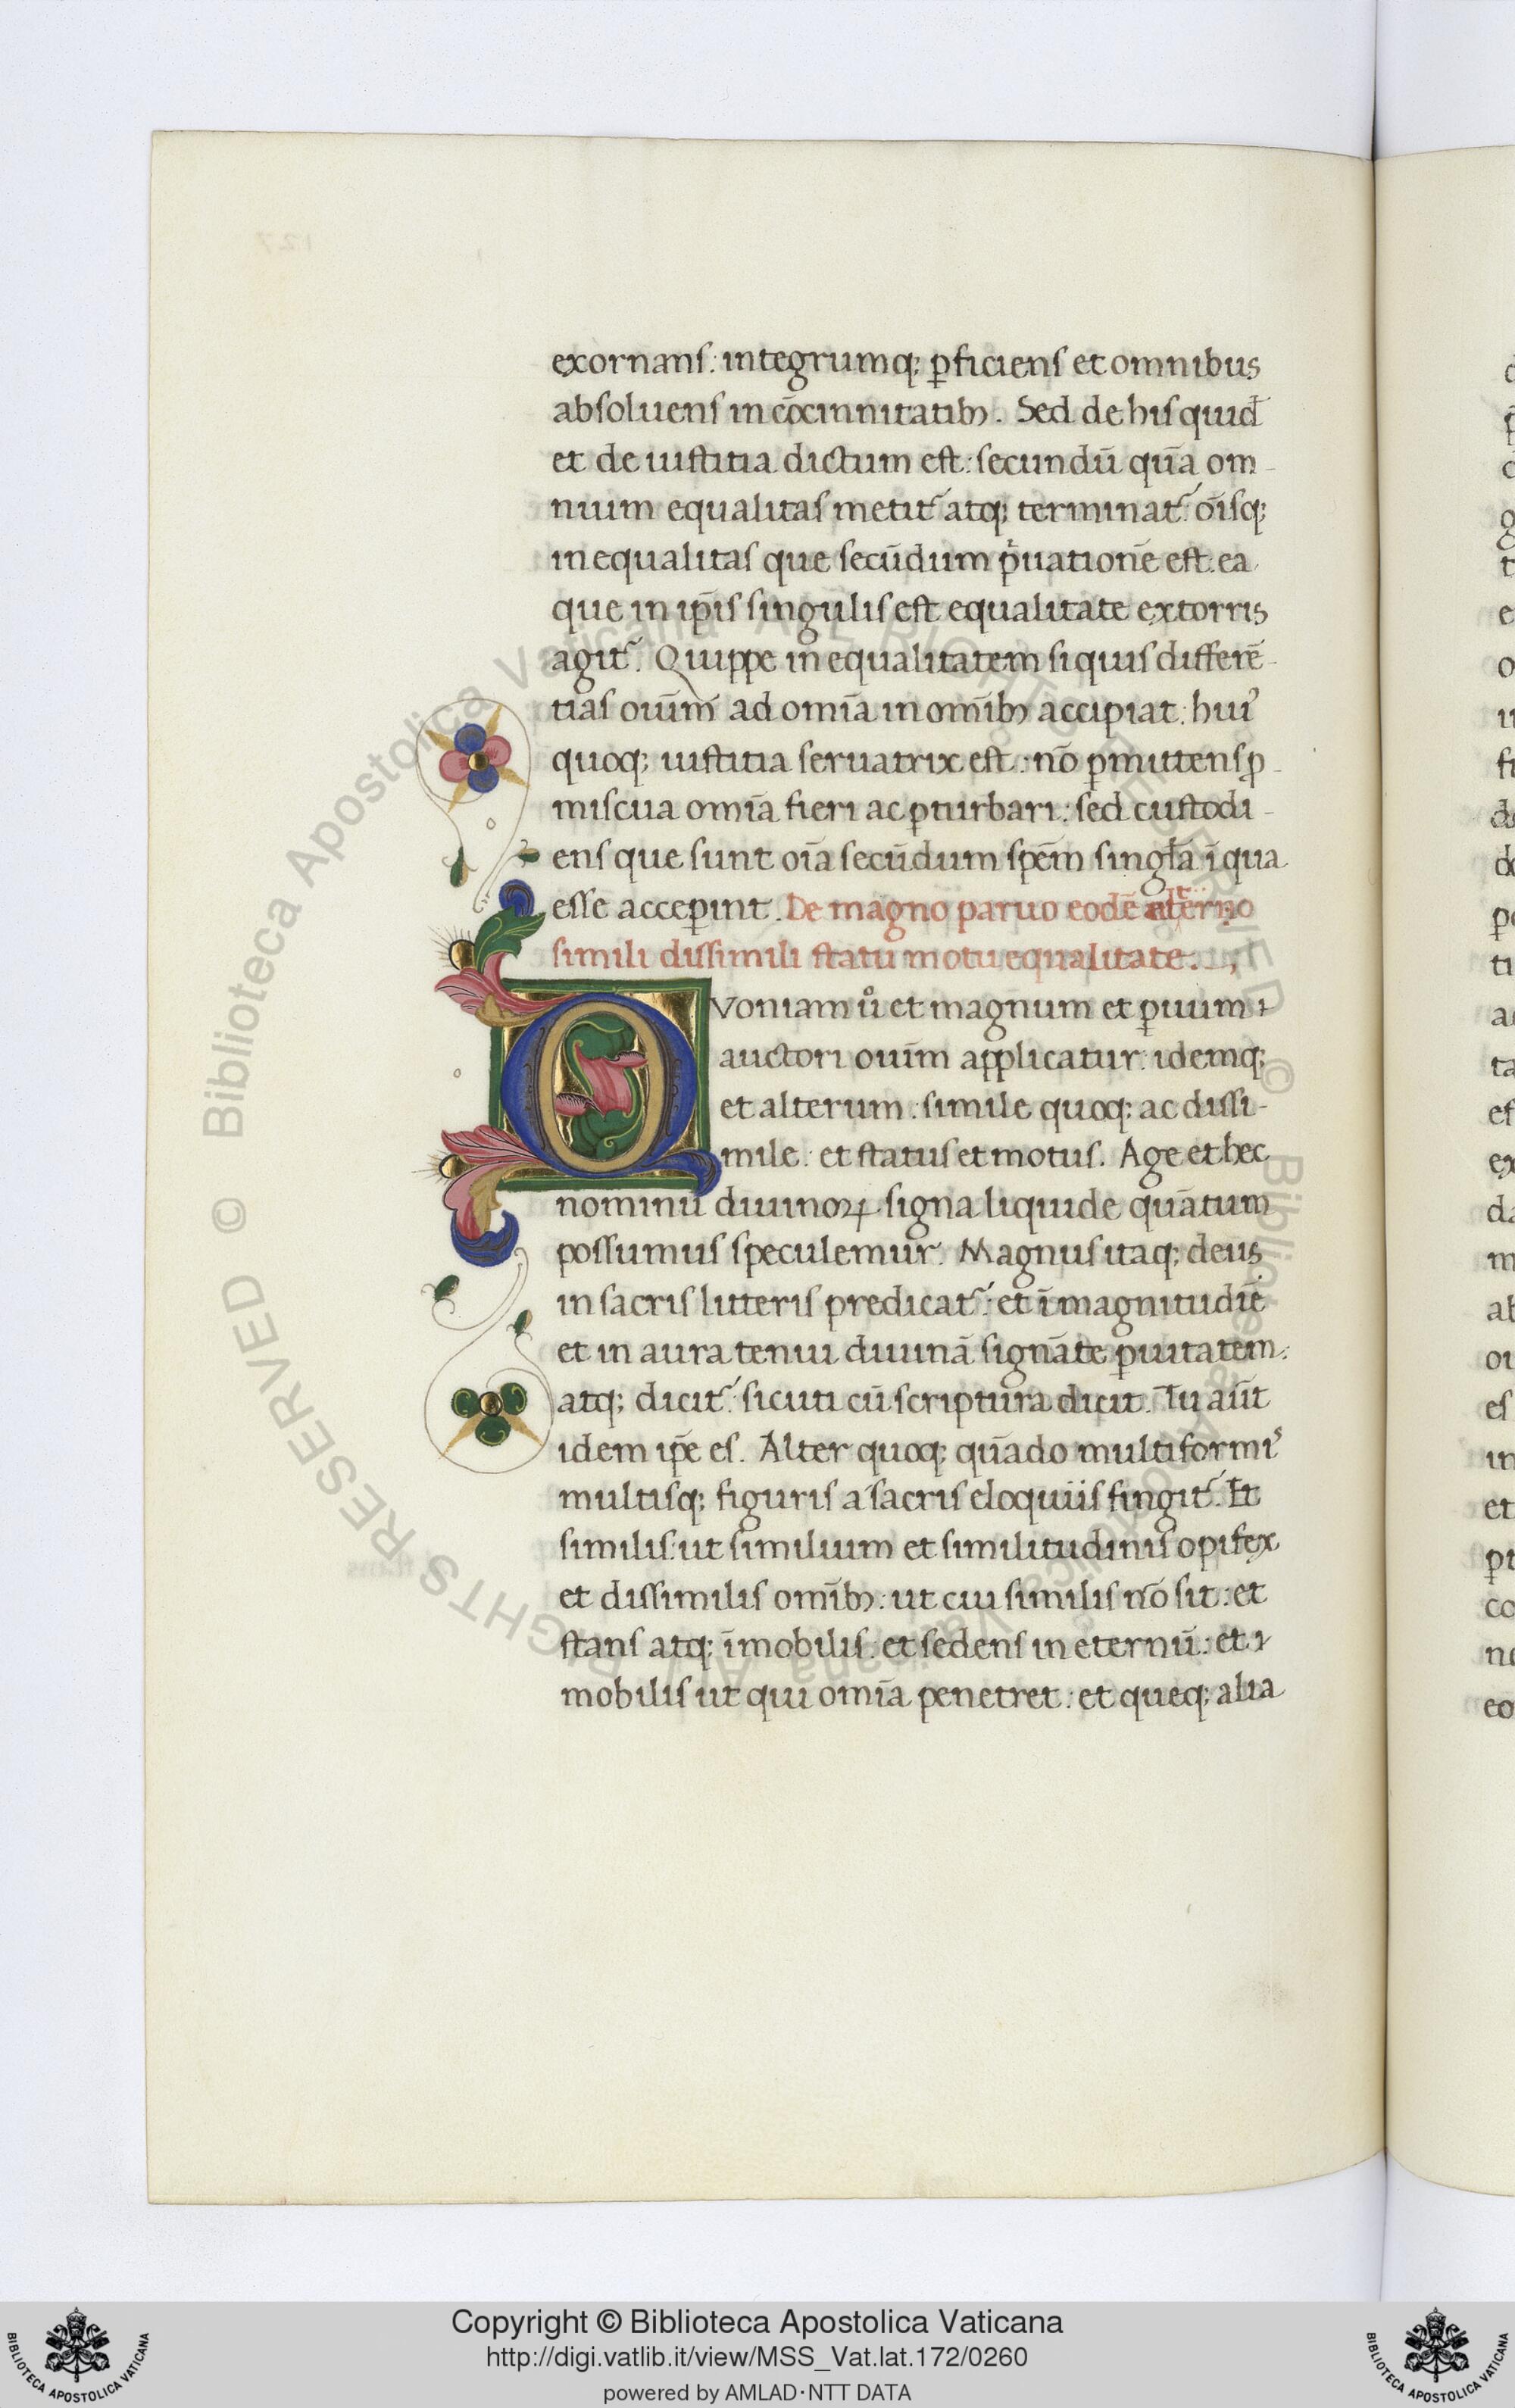 exornans: integrumq; ꝑficiens et omnibus
absoluens in cōcinnitatibꝫ. Sed de his quid̄
et de iustitia dictum est: secundū quā om-
nium equalitas metit᷑ atq; terminat᷑: oīsq;
inequalitas que secūdum pͥuationē est. ea
que in ip̄is singulis est equalitate extorris
agit᷑. Quippe inequalitatem si quis differē-
tias ouīm ad omīa in omībꝫ accipiat: huiꝰ
quoq; iustitia seruatrix est: nō ꝑmittens ꝓ-
miscua omīa fieri ac ꝑturbari: sed custodi-
ens que sunt oīa secūdum spēm singl̄a ī qua
esse acceꝑint. De magno paruo eodē
simili dissimili statu motu equalitate.
Voniam ůet magnum et ꝑuum
auctori ouīm applicatur: idemq;
et alterum: simile quoq; ac dissi-
mile: et status et motus. Age et hec
nominū diuinoꝝ signa liquide quātum
possumus speculemur. Magnus itaq; deus
in sacris litteris predicat᷑: et ī magnitudīe
et in aura tenui diuinā signāte ꝑuitatem:
atq; dicit᷑: sicuti cū scriptura dicit. Tu aūt
idem ip̄e es. Alter quoq; quādo multiformiꝰ
multisq; figuris a sacris eloquiis fingit᷑. Et
similis: ut similium et similitudinis opifex
et dissimilis omībꝫ: ut cui similis nō sit: et
stans atq; īmobilis: et sedens in eternū: et
mobilis ut qui omīa penetret: et queq; alia
© Biblioteca Apostolica Vaticana ALL RIGHTS RESERVED
Copyright © Biblioteca Apostolica Vaticana
http://digi.vatlib.it/view/MSS_Vat.lat.172/0260
powered by AMLAD·NTT DATA
BIBLIOTECA APOSTOLICA VATICANA
BIBLIOTECA APOSTOLICA VATICANA